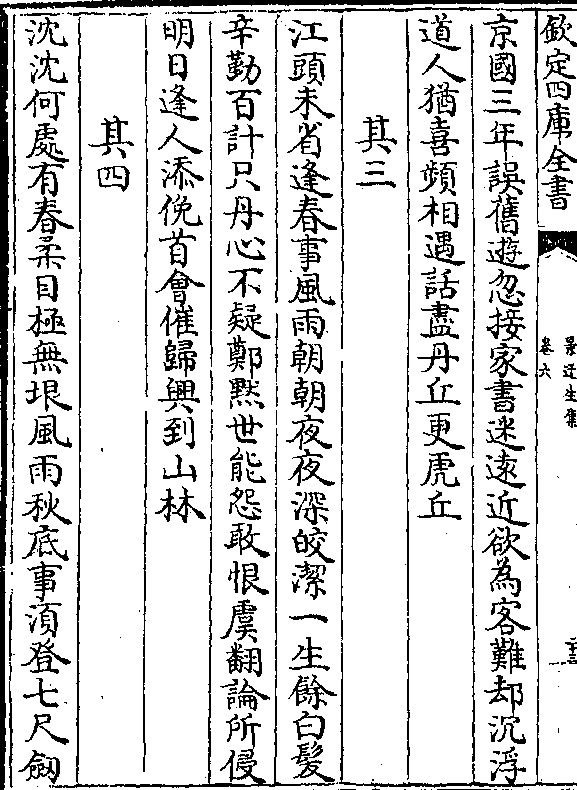 欽定四庫全書
景迂生集
卷六
京國三年誤舊遊忽接家書迷遠近欲為客難却沉浮
道人猶喜頻相遇話盡丹丘更虎丘
其三
江頭未省逢春事風雨朝朝夜夜深皎潔一生餘白髮
辛勤百計只丹心不疑鄭默世能怨敢恨虞翻論所侵
明日逢人添俛首會催歸興到山林
其四
沈沈何處有春柔目極無垠風雨秋底事須登七尺劔